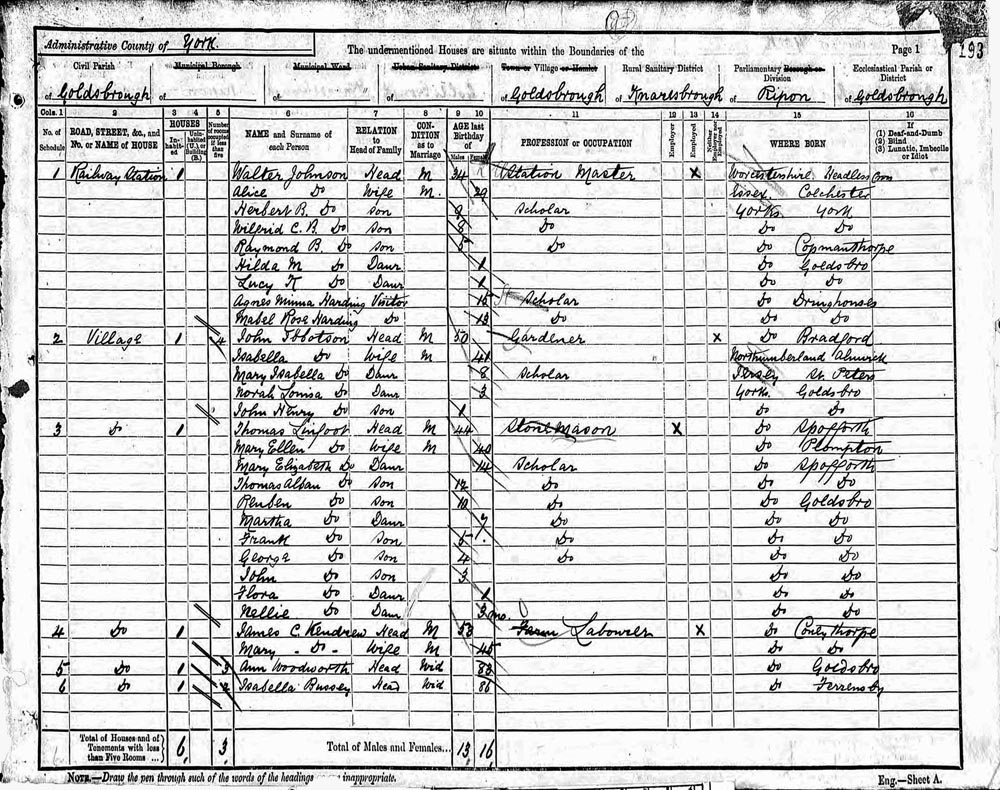 Administrative County of York.
The undermentioned Houses are situate within the Boundaries of the
Page 1
193
Civil Parish
Municipal Borough
Municipal Ward
Urban Sanitary District
Town or Village or Hamlet
Rural Sanitary District
Parliamentary Borough or Division
Ecclesiastical Parish or District
of Goldsbrough
of
of
of
of Goldsbrough
of Knaresbrough
of Ripon
of Goldsbrough
Cols. 1 2 3 4 5 6 7 8 9 10 11 12 13 14 15 16
No. of Schedule
ROAD, STREET, &c., and No. or NAME of HOUSE
HOUSES
Inhabited
Uninhabited (U.) or Building (B.)
Number of rooms occupied if less than five
NAME and Surname of each Person
RELATION to Head of Family
CONDITION as to Marriage
AGE last Birthday of
Males
Females
PROFESSION or OCCUPATION
Employer
Employed
Neither Employer nor Employed
WHERE BORN
If (1) Deaf-and-Dumb (2) Blind (3) Lunatic, Imbecile or Idiot
1 Railway Station 1 Walter Johnson Head M 34 Station Master X Worcestershire Headless Cross
Alice Do Wife M. 29 Essex Colchester
Herbert B. Do Son 9 Scholar Yorks York
Wilfrid C. B. Do Son 8 Do Do Do
Raymond B. Do Son 5 Do Do Copmanthorpe
Hilda M Do Daur 1 Do Goldsbro
Lucy K Do Daur 1 Do Do
Agnes Minna Harding Visitor 15 Scholar Do Dringhouses
Mabel Rose Harding Do 13 Do Do Do
2 Village 1 4 John Ibbotson Head M 50 Gardener X Do Bradford
Isabella Do Wife M 41 Northumberland Alnwick
Mary Isabella Do Daur 8 Scholar Jersey St. Peters
Norah Louisa Do Daur 3 Yorks Goldsbro
John Henry Do Son 1 Do Do
3 Do 1 Thomas Linfoot Head M 44 Stone Mason X Do Spofforth
Mary Ellen Do Wife M 40 Do Plompton
Mary Elizabeth Do Daur 14 Scholar Do Spofforth
Thomas Alban Do Son 12 Do Do Do
Reuben Do Son 10 Do Do Goldsbro
Martha Do Daur 7 Do Do Do
Frank Do Son 5 Do Do Do
George Do Son 4 Do Do Do
John Do Son 3 Do Do
Flora Do Daur 1 Do Do
Nellie Do Daur 3 mo. Do Do
4 Do 1 James C. Kendrew Head M 53 Farm Labourer X Do Coneythorpe
Mary Do Wife M 45 Do Do
5 Do 1 3 Ann Woodworth Head Wid 83 Do Goldsbro
6 Do 1 2 Isabella Bussey Head Wid 86 Do Ferrensby
Total of Houses and of Tenements with less than Five Rooms ... 6 3
Total of Males and Females... 13 16
NOTE.—Draw the pen through such of the words of the headings inappropriate.
Eng.—Sheet A.